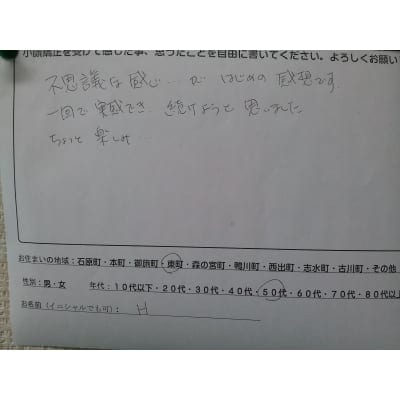 小顔矯正を受けて感じた事、思ったことを自由に書いてください。よろしくお願い
不思議な感じ… が はじめの 感想です.
一回で 実感でき、続けようと 思いました
ちょっと 楽しみ…
お住まいの地域：石原町・本町・御旅町・東町・森の宮町・鴨川町・西出町・志水町・古川町・その他
性別：男・女　年代：10代以下・20代・30代・40代・50代・60代・70代・80代以上
お名前（イニシャルでも可）：　H